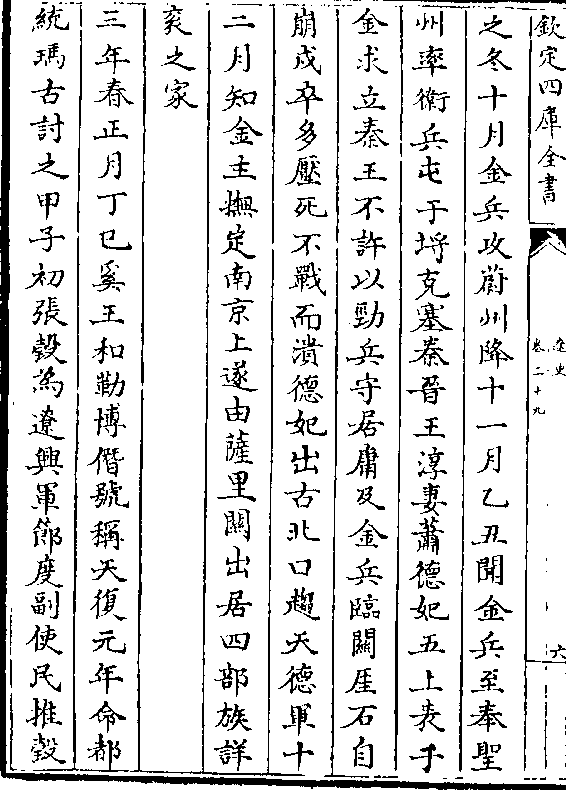 欽定四庫全書
遼史
卷二十九
六
之冬十月金兵攻蔚州降十一月乙丑聞金兵至奉聖
州率衛兵屯于埒克塞秦晉王淳妻蕭德妃五上表于
金求立秦王不許以勁兵守居庸及金兵臨關厓石自
崩戍卒多壓死不戰而潰德妃出古北口趨天德軍十
二月知金主撫定南京上遂由薩里關出居四部族詳
衮之家
三年春正月丁巳奚王和勒博僭號稱天復元年命都
統瑪古討之甲子初張㲄為遼興軍節度副使民推㲄